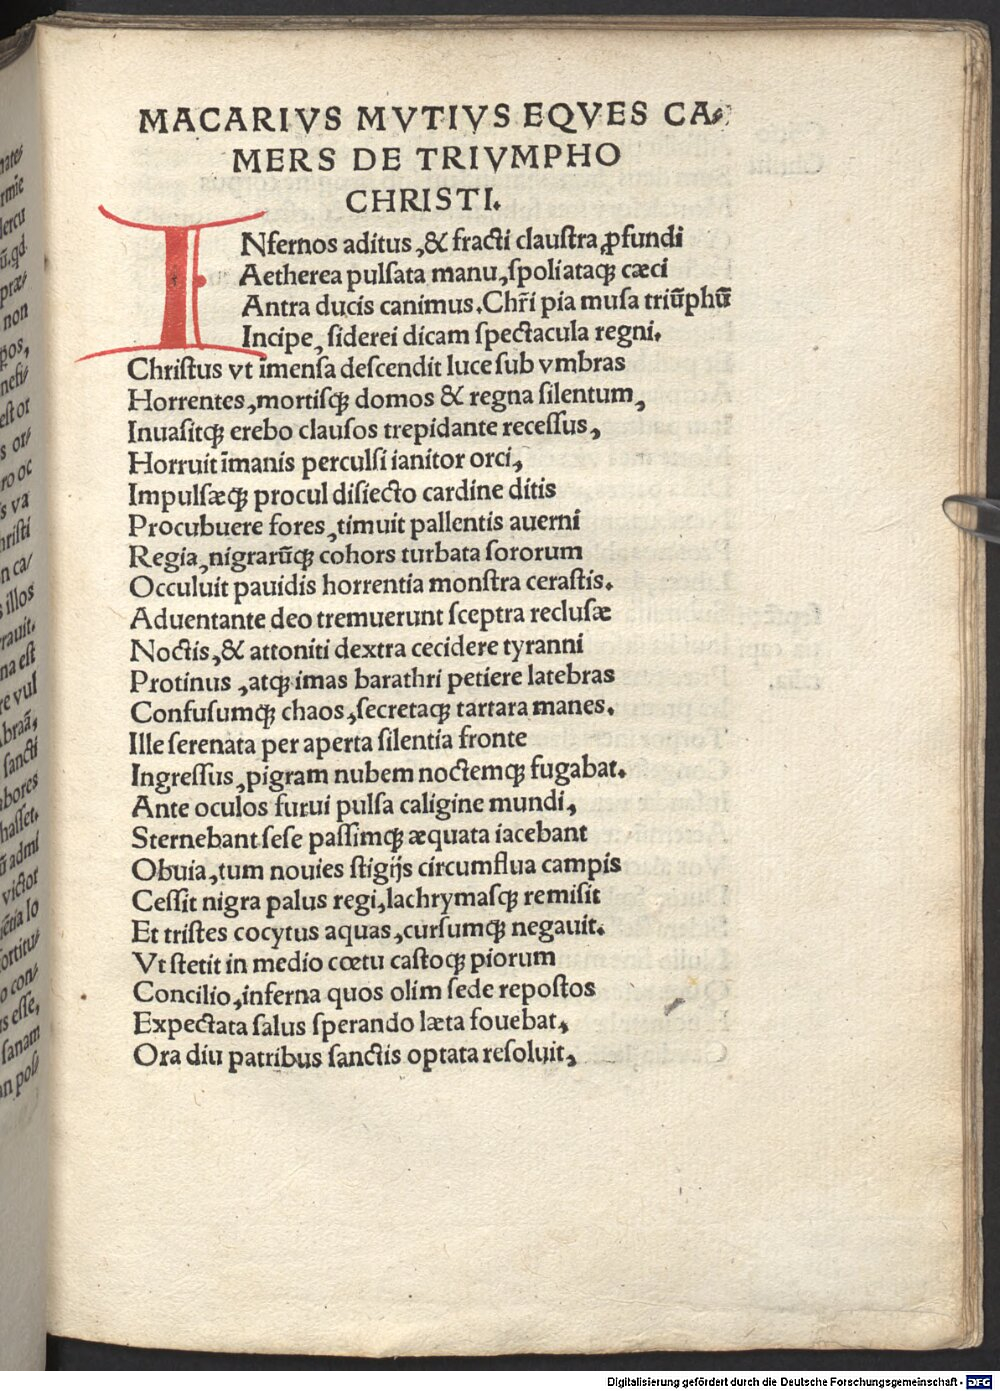 MACARIVS MVTIVS EQVES CA⸗
MERS DE TRIVMPHO
CHRISTI.
INfernos aditus, & fracti clauſtra ꝓfundi
Aetherea pulſata manu, ſpoliataqꝫ cæci
Antra ducis canimus. Chr̄i pia muſa triūphū
Incipe, ſiderei dicam ſpectacula regni.
Chriſtus vt īmenſa deſcendit luce ſub vmbras
Horrentes, mortiſqꝫ domos & regna ſilentum,
Inuaſitqꝫ erebo clauſos trepidante receſſus,
Horruit īmanis perculſi ianitor orci,
Impulſæqꝫ procul diſiecto cardine ditis
Procubuere fores, timuit pallentis auerni
Regia, nigrarūqꝫ cohors turbata ſororum
Occuluit pauidis horrentia monſtra ceraſtis.
Aduentante deo tremuerunt ſceptra recluſæ
Noctis, & attoniti dextra cecidere tyranni
Protinus, atqꝫ imas barathri petiere latebras
Confuſumqꝫ chaos, ſecretaqꝫ tartara manes.
Ille ſerenata per aperta ſilentia fronte
Ingreſſus, pigram nubem noctemqꝫ fugabat.
Ante oculos furui pulſa caligine mundi,
Sternebant ſeſe paſſimqꝫ æquata iacebant
Obuia, tum nouies ſtigijs circumflua campis
Ceſſit nigra palus regi, lachrymaſqꝫ remiſit
Et triſtes cocytus aquas, curſumqꝫ negauit.
Vt ſtetit in medio cœtu caſtoqꝫ piorum
Concilio, inferna quos olim ſede repoſtos
Expectata ſalus ſperando læta fouebat,
Ora diu patribus ſanctis optata reſoluit,
Digitalisierung gefördert durch die Deutsche Forschungsgemeinschaft - DFG